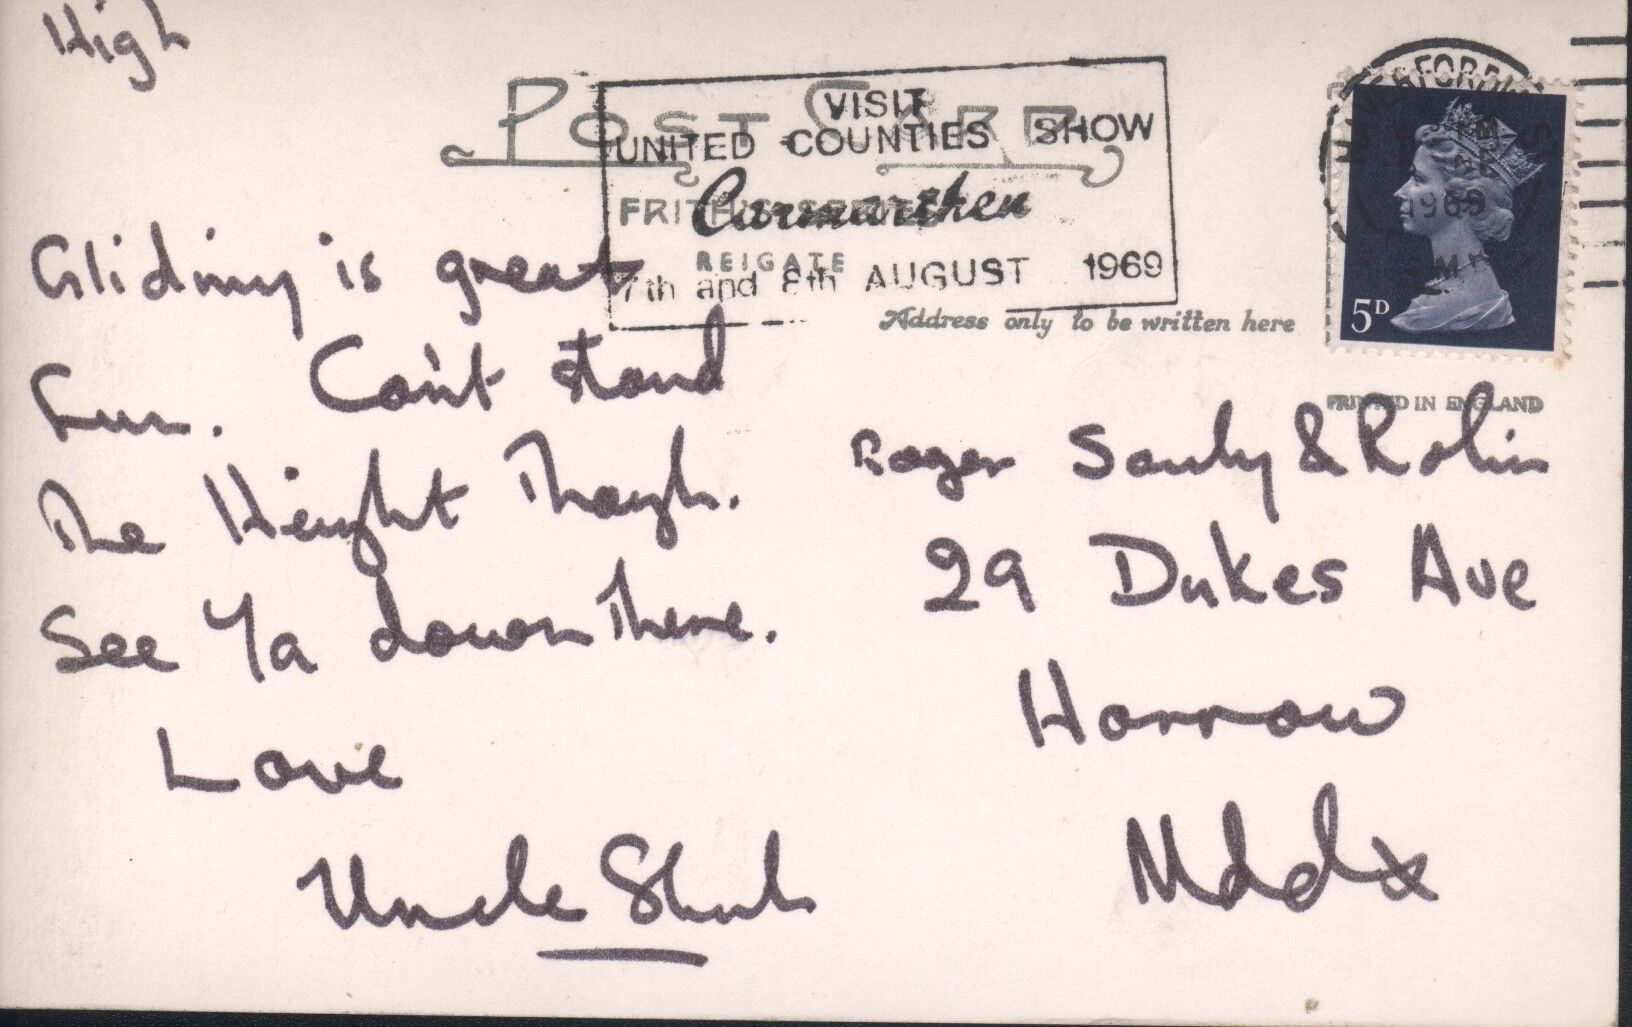 High
POST CARD
VISIT
UNITED COUNTIES SHOW
Carmarthen
7th and 8th AUGUST 1969
FRITH'S SERIES
REIGATE
Address only to be written here
HAVERFORDWEST
1969
5D
PRINTED IN ENGLAND
Gliding is great
fun. Can't stand
The Height Though.
See Ya down There.
Love
Uncle
Roger Sandy & Robin
29 Dukes Ave
Harrow
Middx